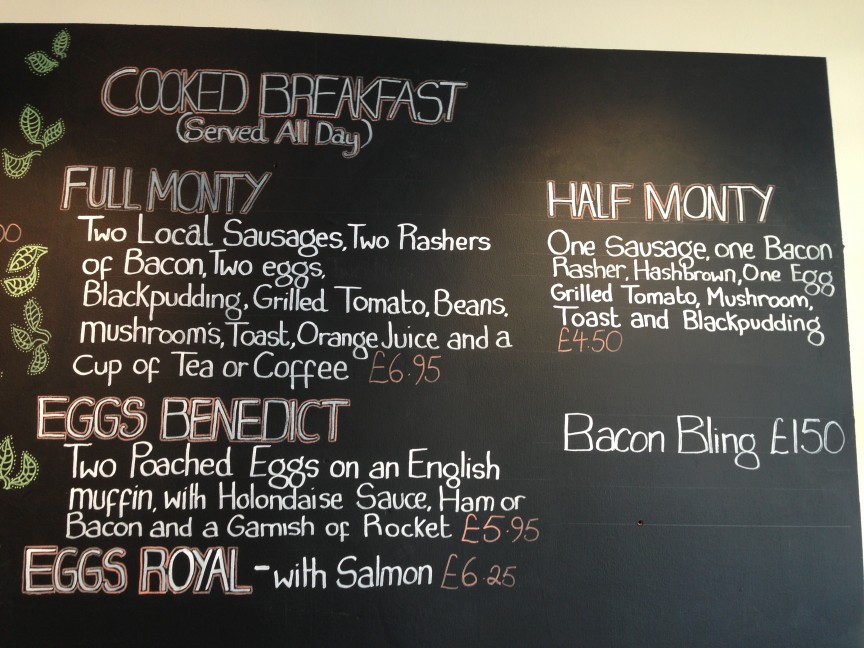 COOKED BREAKFAST
(Served All Day)
FULL MONTY
Two Local Sausages, Two Rashers
of Bacon, Two eggs,
Blackpudding, Grilled Tomato, Beans,
mushroom's, Toast, Orange Juice and a
Cup of Tea or Coffee £6.95
EGGS BENEDICT
Two Poached Eggs on an English
muffin, with Holondaise Sauce, Ham or
Bacon and a Garnish of Rocket £5.95
EGGS ROYAL - with Salmon £6.25
HALF MONTY
One Sausage, one Bacon
Rasher, Hashbrown, One Egg
Grilled Tomato, Mushroom,
Toast and Blackpudding
£4.50
Bacon Bling £150